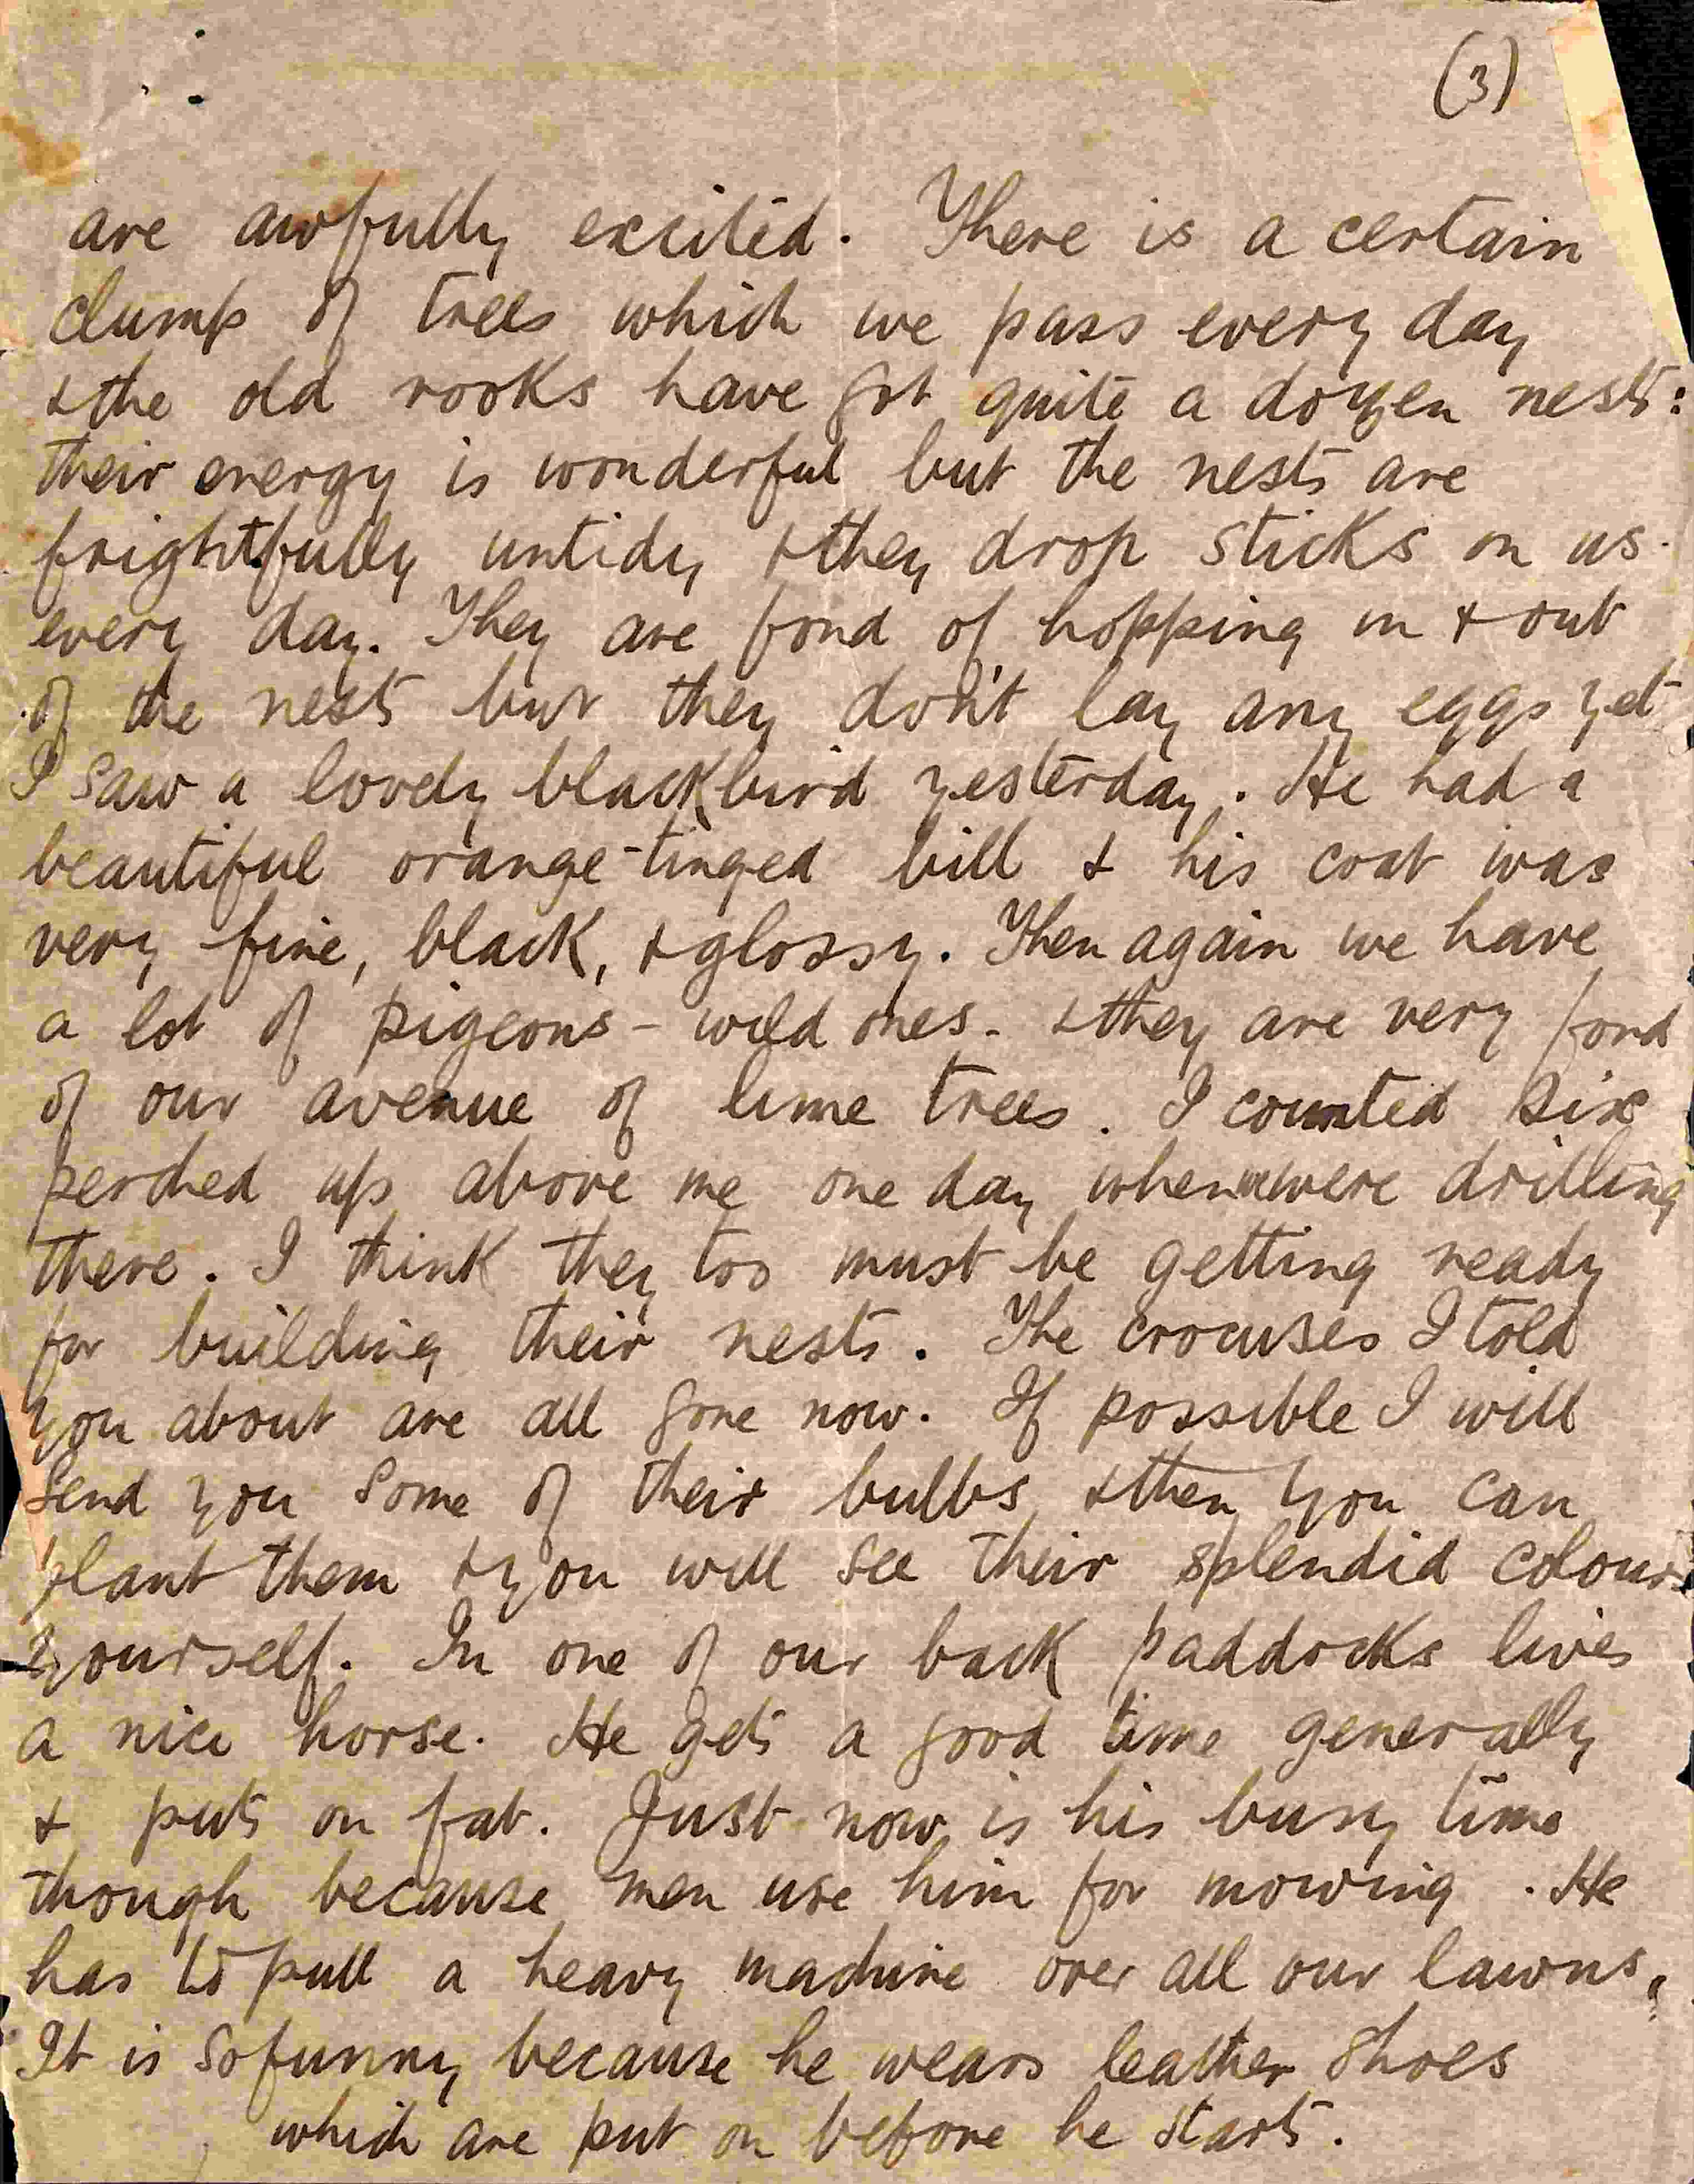 (3)
are awfully excited. There is a certain
clump of trees which we pass every day
& the old rooks have got quite a dozen nests:
their energy is wonderful but the nests are
frightfully untidy & they drop sticks on us
every day. They are fond of hopping in & out
of the nests but they don't lay any eggs yet
I saw a lovely blackbird yesterday. He had a
beautiful orange-tinged bill & his coat was
very fine, black, & glossy. Then again we have
a lot of pigeons - wild ones - & they are very fond
of our avenue of lime trees. I counted six
perched up above me one day when we were drilling
there. I think they too must be getting ready
for building their nests. The crocuses I told
you about are all gone now. If possible I will
send you some of their bulbs & then you can
plant them & you will see their splendid colours
yourself. In one of our back paddocks lives
a nice horse. He gets a good time generally
& puts on fat. Just now is his busy time
though because men use him for mowing. He
has to pull a heavy machine over all our lawns.
It is so funny because he wears leather shoes
which are put on before he starts.